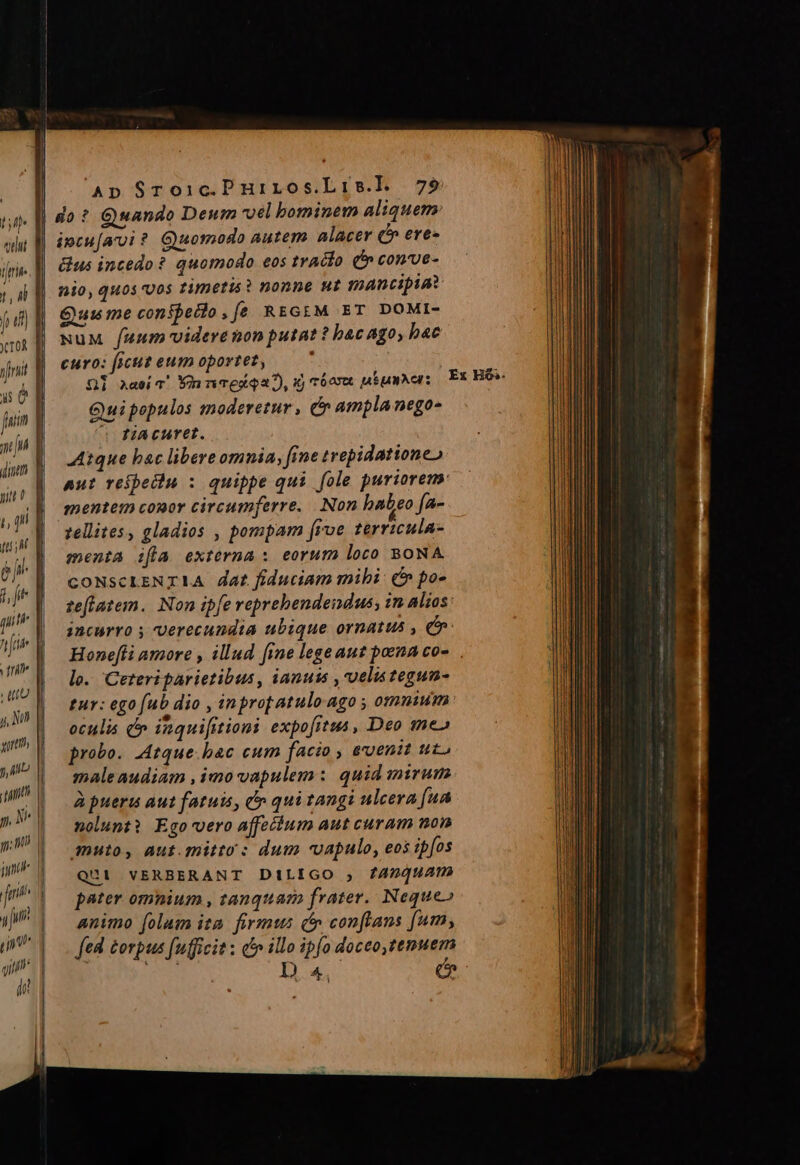 AD STOIC. PHILOS. LIB. I. 79
do? Quando Deum vel hominem aliquem
incuſavi? Quomodo autem alacer & ere-
ctus incedo? quomodo eos tracto & conve-
nio, quos vos timetis? nonne ut mancipia?
Quis me conſpecto, ſe REGEM ET DOMI-
NUM ſuum videre non putat? hac ago, hac
curo: ſicut eum oportet,
Ω λαοί τ' ἐπιτετράφα), καὶ τόσσα μέμηλεν: Ex Hõ.
Qui populos moderetur, & ampla nego-
tia curet.
Atque hac libere omnia, ſine trepidatione
aut reſpectu: quippe qui ſole puriorem
mentem conor circumferre. Non habeo ſa-
tellites, gladios, pompam ſive terricula-
menta iſta externa: eorum loco BONA
CONSCIENTIA dat fiduciam mihi & po-
teſtatem. Non ipſe reprehendendus, in alios
incurro; verecundia ubique ornatus, &
Honeſti amore, illud ſine lege aut pœna co-
lo. Ceteri parietibus, ianuis, velis tegun-
tur: ego ſub dio, in propatulo ago; omnium
oculis & inquiſitioni expoſitus, Deo me
probo. Atque hac cum facio, evenit ut
male audiam, imo vapulem: quid mirum
à pueris aut fatuis, & qui tangi ulcera ſua
nolunt? Ego vero affectum aut curam non
muto, aut mitto: dum vapulo, eos ipſos
QUI VERBERANT DILIGO, tanquam
pater omnium, tanquam frater. Neque
animo ſolum ita firmus & conſtans ſum,
ſed corpus ſufficit: & illo ipſo doceo, tenuem
D 4 &